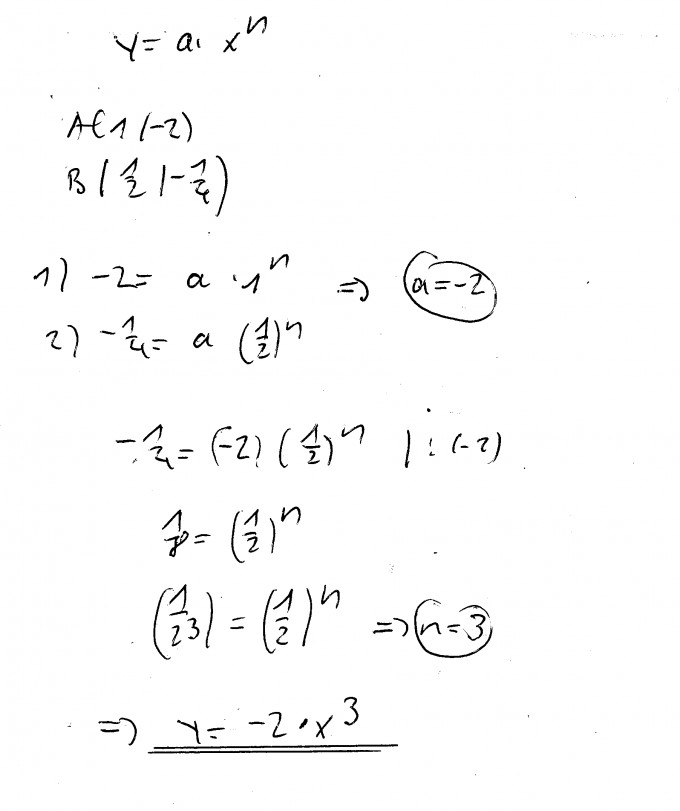 y = a · xⁿ
A(1 | -2)
B(1/2 | -1/4)
1) -2 = a · 1ⁿ => a = -2
2) -1/4 = a (1/2)ⁿ
-1/4 = (-2) (1/2)ⁿ | : (-2)
1/8 = (1/2)ⁿ
(1/2³) = (1/2)ⁿ => n = 3
=> y = -2 · x³